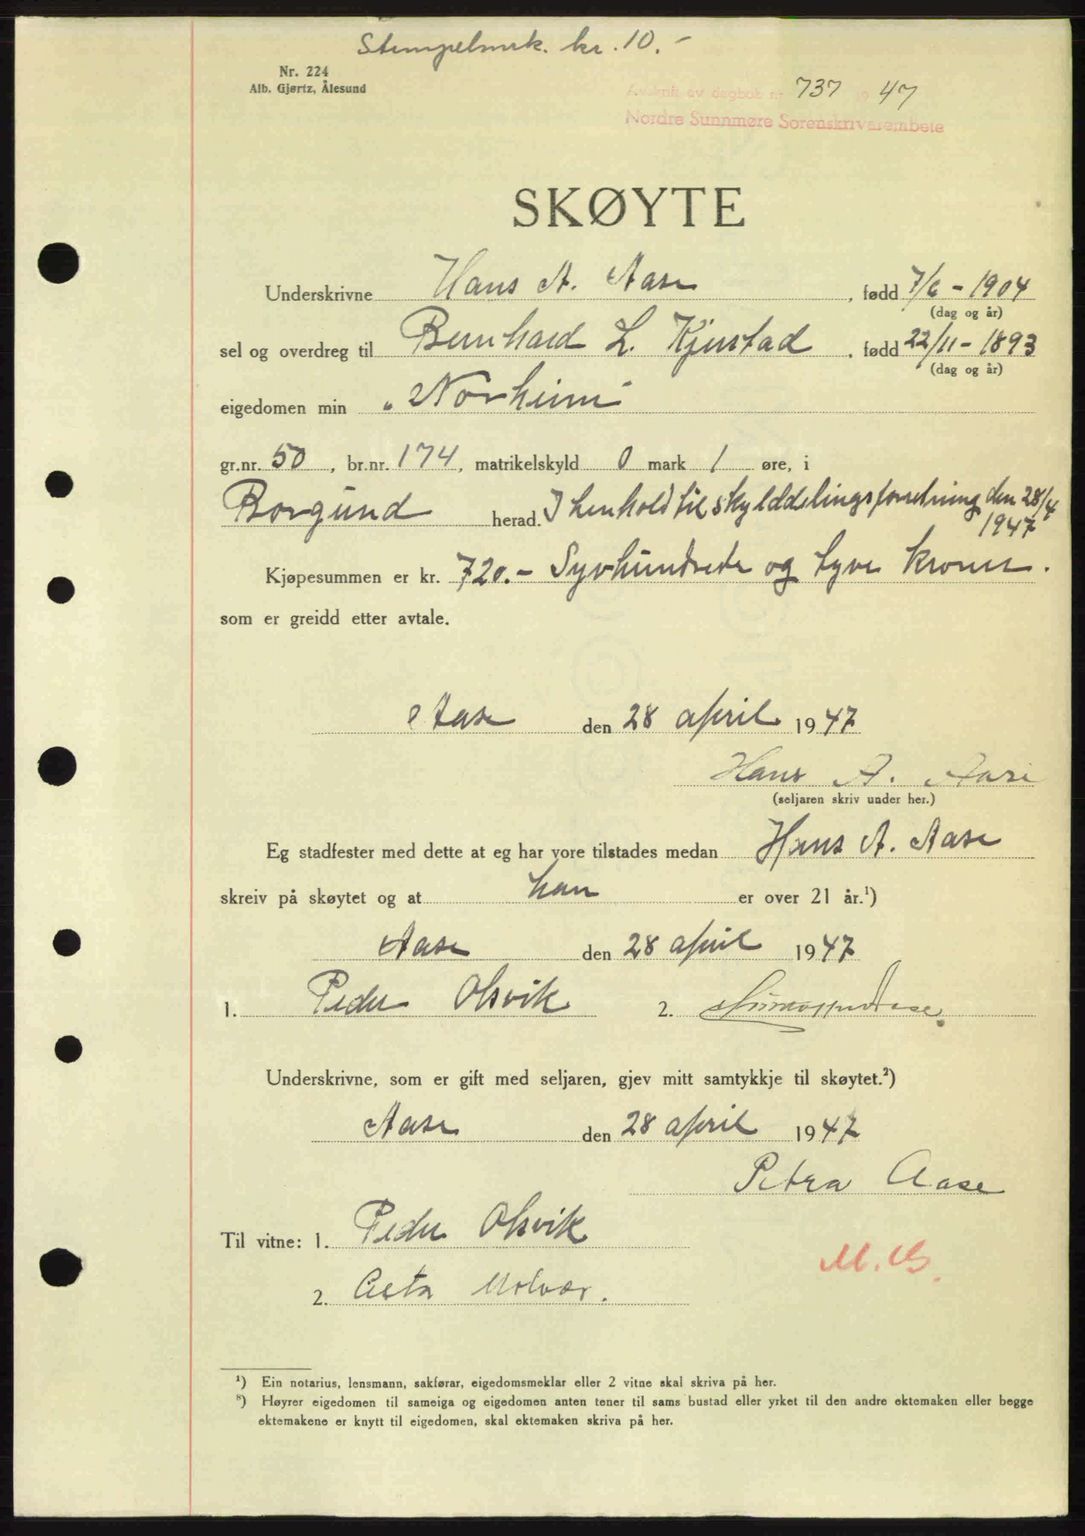 Stempelmrk. kr. 10.-
Nr. 224
Alb. Gjørtz, Ålesund
Avskrift av dagbok nr. 737 19 47
Nordre Sunnmøre Sorenskrivarembete
SKØYTE
Underskrivne Hans A. Aase, fødd 7/6 - 1904
(dag og år)
sel og overdreg til Bernhard L. Kjerstad, fødd 22/11 - 1893
(dag og år)
eigedomen min "Norheim"
gr.nr. 50, br.nr. 174, matrikelskyld 0 mark 1 øre, i
Borgund herad. I henhold til skylddelingsforretning den 28/4
1947
Kjøpesummen er kr. 720.- Syvhundrede og tyve kroner.
som er greidd etter avtale.
Aase den 28 april 1947
Hans A. Aase
(seljaren skriv under her.)
Eg stadfester med dette at eg har vore tilstades medan Hans A. Aase
skreiv på skøytet og at han er over 21 år.¹)
Aase den 28 april 1947
1. Peder Olsvik 2. Aase.
Underskrivne, som er gift med seljaren, gjev mitt samtykkje til skøytet.²)
Aase den 28 april 1947
Petra Aase
Til vitne: 1. Peder Olsvik
M. B.
2. Molvær.
¹) Ein notarius, lensmann, sakførar, eigedomsmeklar eller 2 vitne skal skriva på her.
²) Høyrer eigedomen til sameiga og eigedomen anten tener til sams bustad eller yrket til den andre ektemaken eller begge
ektemakene er knytt til eigedomen, skal ektemaken skriva på her.